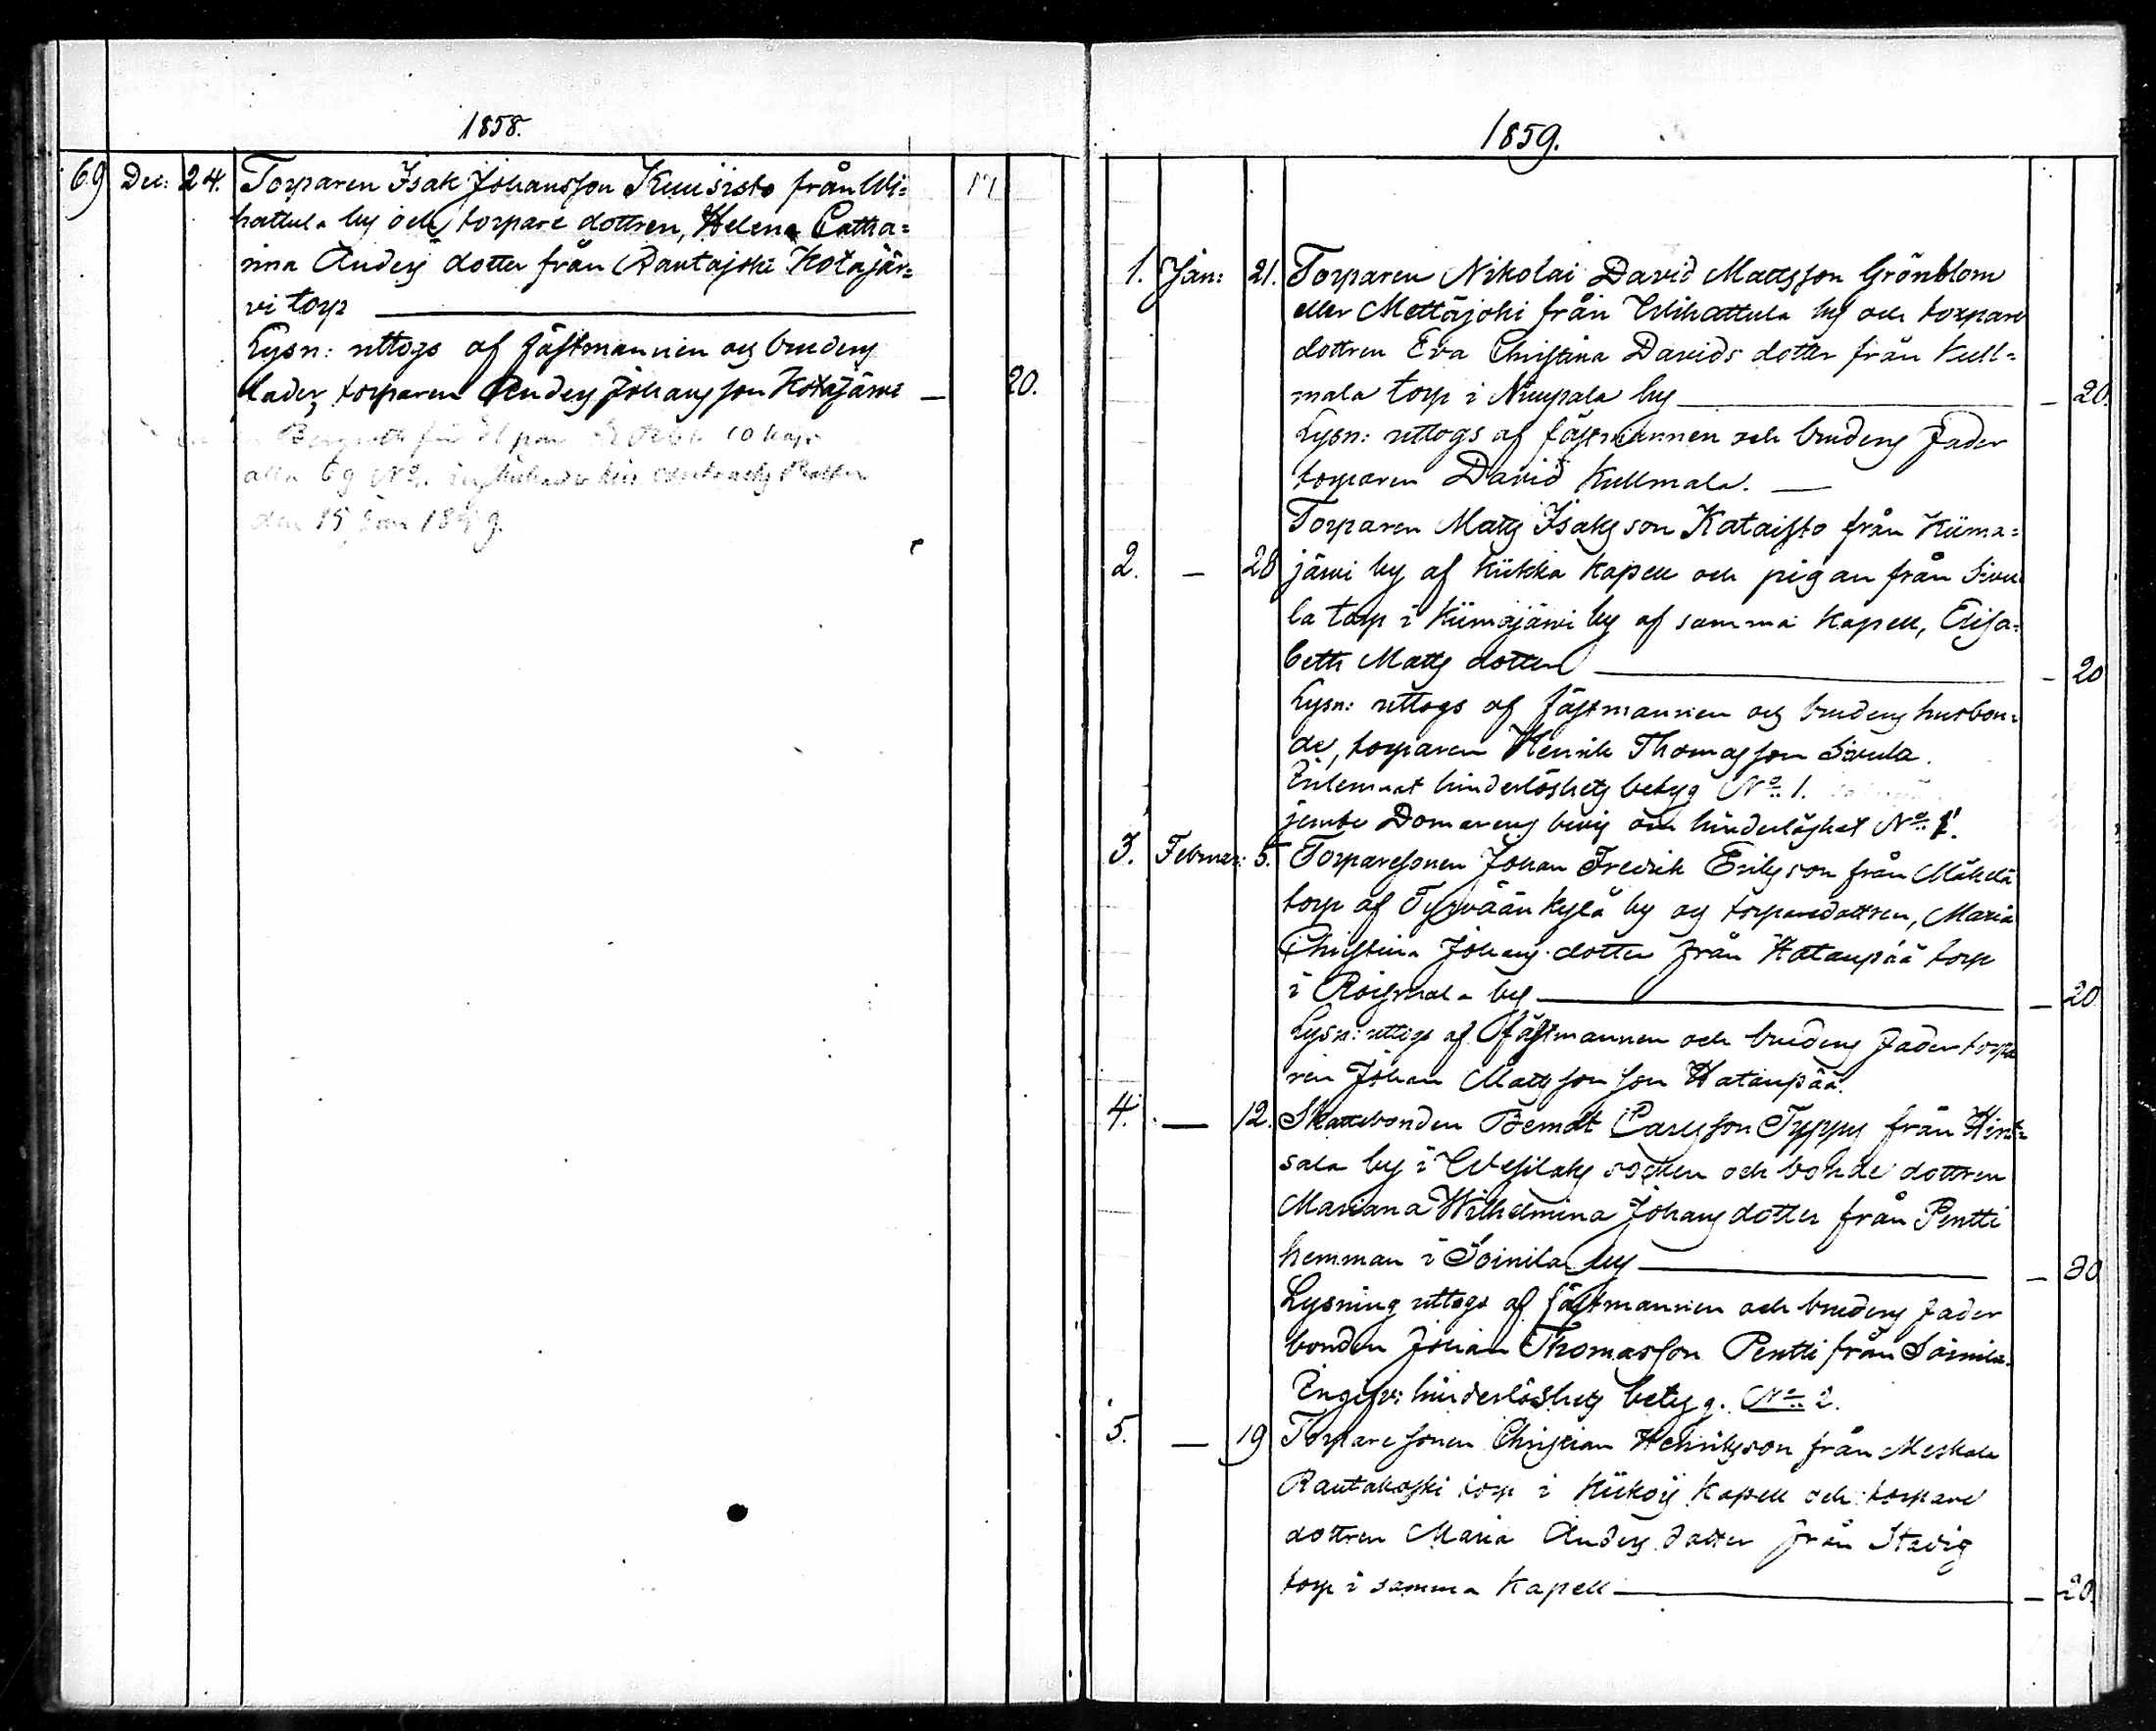 1858.
69 Dec: 24. Torparen Isak Johansson Kuusisto från Wi=
hattula by och torpare dottren, Helena Catha=
rina Anders dotter från Rautajoki Kotajär=
vi torp
Lysn: uttogs af fästmannen och brudens
fader, torparen Anders Johansson Kotajärvi — 20.
alla 69 No.
den 15 Jan 1859.
1859.
1. Jan: 21. Torparen Nikolai David Mattsson Grönblom
eller Mettäjoki från Wihattula by och torpare
dottren Eva Christina Davids dotter från Kull=
mala torp i Nuupala by — 20.
Lysn: uttogs af fästmannen och brudens fader
torparen David Kullmala. —
Torparen Matts Isaksson Kataisto från Kiima=
2. — 28 järvi by af Kiikka Kapell och pigan från Sivu
la torp i Kiimajärvi by af samma Kapell, Elisa=
beth Matts dotter — 20
Lysn: uttogs af fästmannen och brudens husbon=
de, torparen Henrik Thomasson Sivula.
Inlemnat hinderlöshets betyg No. 1.
jemte Domarens bevis om hinderlöshet No. 1.
3. Februar: 5. Torparesonen Johan Fredrik Eriksson från Mäkelä
torp af Tyrväänkylä by och torparedottren, Maria
Christina Johans dotter från Hatanpää torp
i Roismala by — 20
Lysn: uttogs af fästmannen och brudens fader torpa
ren Johan Mattsson Hatanpää.
4. — 12. Skattebonden Berndt Carlsson Typpy från Hint=
sala by i Wesilaks socken och bonde dottren
Mariana Wilhelmina Johans dotter från Pentti
hemman i Soinila by — 30
Lysning uttogs af fästmannen och brudens fader
bonden Johan Thomasson Pentti från Soinila.
Ingifv: hinderlöshets betyg. No. 2.
5. — 19 Torpare sonen Christian Henriksson från Meskala
Rautakoski torp i Kiikois Kapell och torpare
dottren Maria Anders dotter från Stavig
torp i samma Kapell — 20.